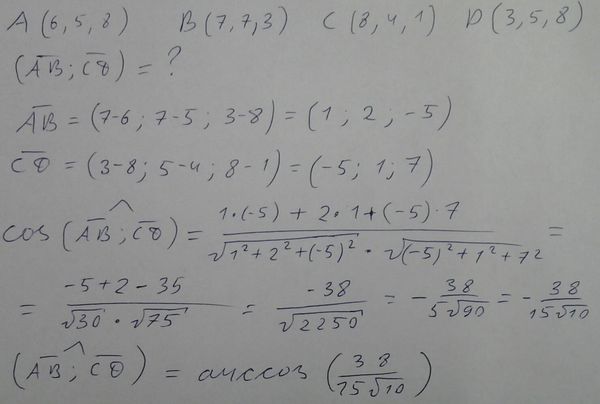 A (6,5,8) B (7,7,3) C (8,4,1) D (3,5,8)
(A̅B̅; C̅D̅) = ?
A̅B̅ = (7-6; 7-5; 3-8) = (1; 2; -5)
C̅D̅ = (3-8; 5-4; 8-1) = (-5; 1; 7)
cos (A̅B̅^; C̅D̅) = (1·(-5) + 2·1 + (-5)·7) / (√(1²+2²+(-5)²) · √((-5)²+1²+7²)) =
= (-5+2-35) / (√30 · √75) = -38 / √2250 = - 38 / 5√90 = - 38 / 15√10
(A̅B̅^; C̅D̅) = arccos (38 / 15√10)